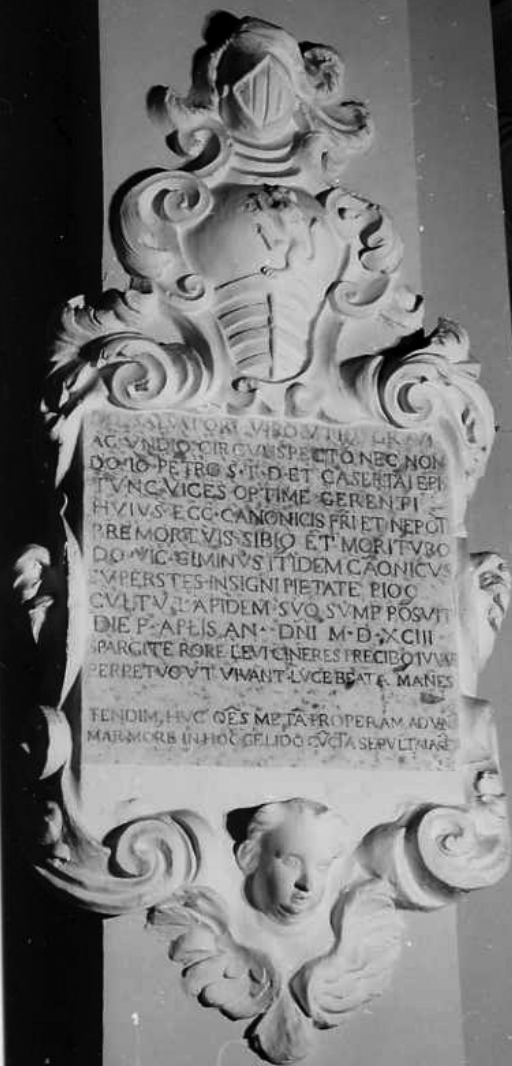 SALVATORI VIRO
AC VNDIQ CIRCVNSPECTO NEC NON
DO IO PETRO S·T·D·ET CASERTAI EPI
TVNC VICES OPTIME GERENTI
HVIVS ECC·CANONICIS FRI ET NEPOTI
PREMORTVIS SIBIQ ET MORITVRO
DO VIC GIMINVS ITIDEM CAONICVS
SVPERSTES INSIGNI PIETATE PIOQ
CVLTV LAPIDEM SVO SVMP POSVIT
DIE P APLIS AN DNI M·D·XCIII
SPARGITE RORE LEVI CINERES PRECIBQ IVVAE
PERPETVO VT VIVANT LVCE BEATA MANES
TENDIM HVC OES META PROPERAM AD VNA
MARMORE IN HOC GELIDO CVCTA SEPVLTA